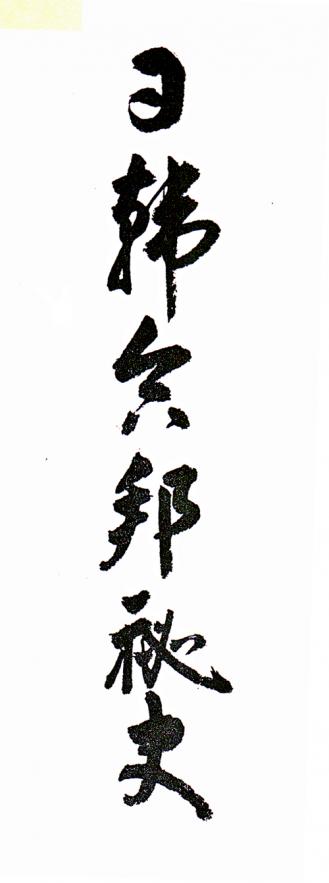 日韓合邦秘史